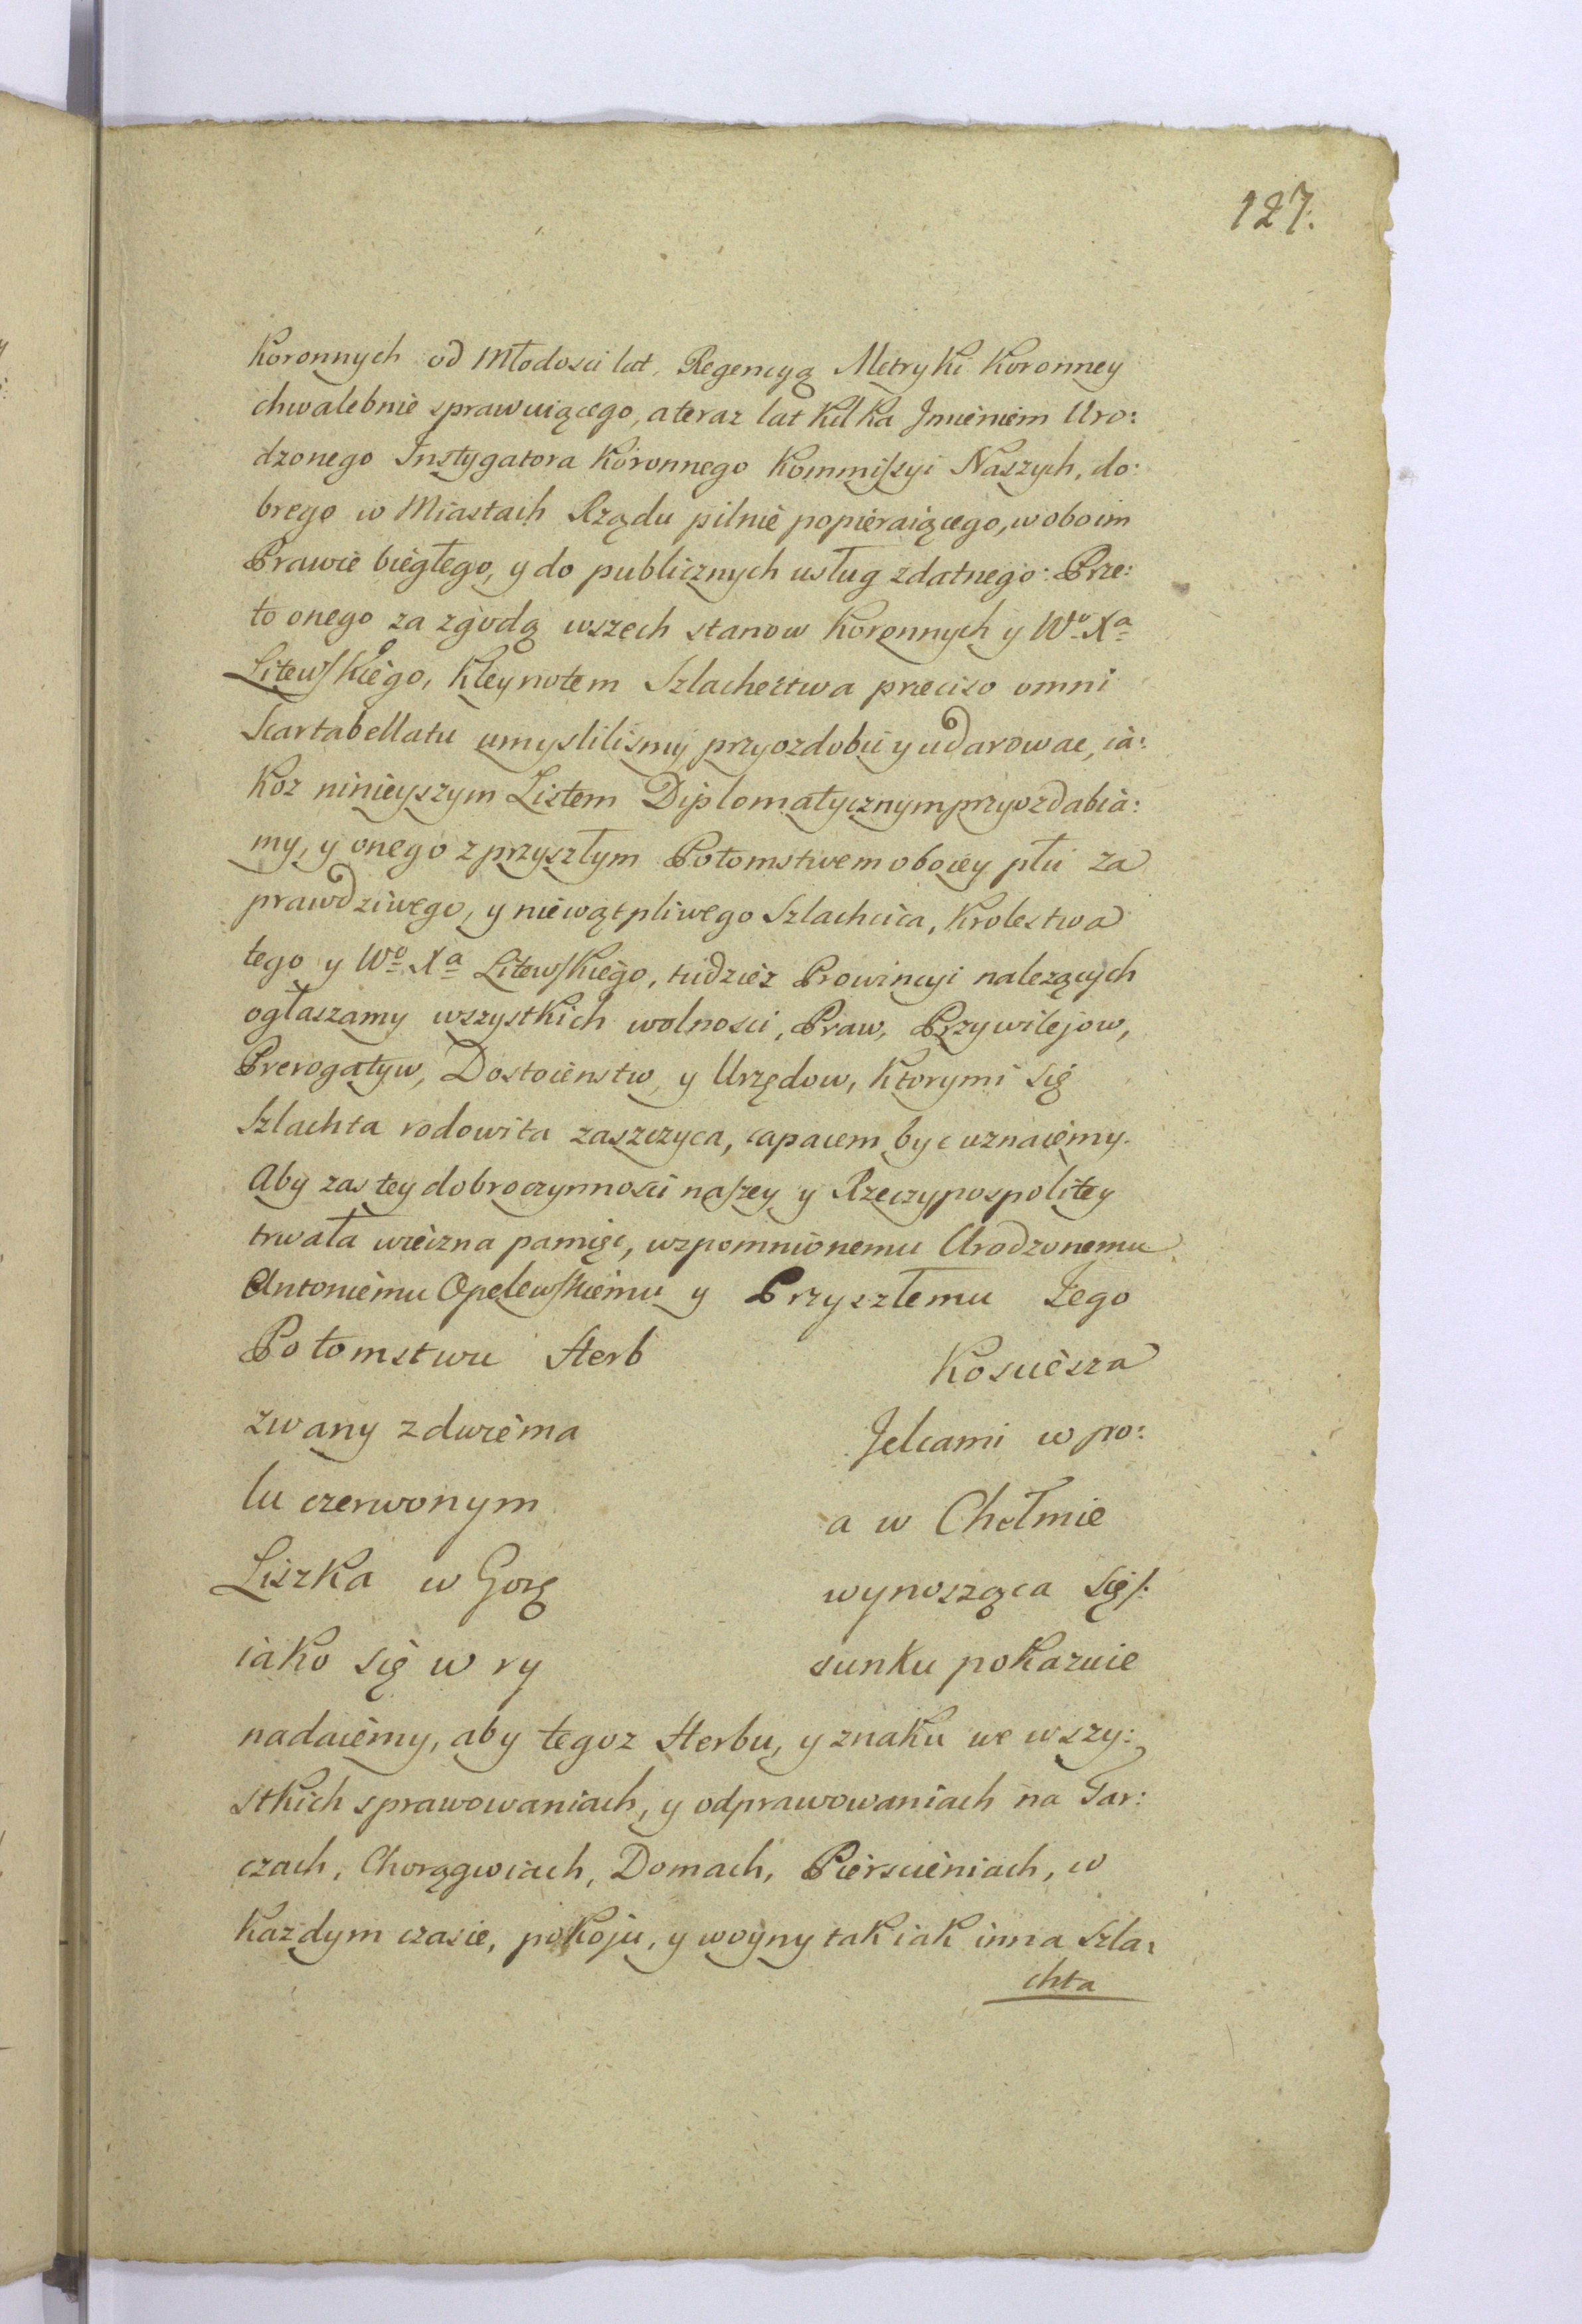 127.
Koronnych od Młodosci lat, Regencyą Metryki Koronney
chwalebnie sprawuiącego, a teraz lat kilka Jmieniem Uro:
dzonego Instygatora Koronnego Kommissyi Naszych, do:
brego w Miastach Rządu pilnie popieraiącego, w oboim
Prawie biegłego, y do publicznych usług zdatnego: Prze:
to onego za zgodą wszech stanow Koronnych y Wo Xa
Litewskiego, Kleynotem Szlachectwa preciso omni
Scartabellatu umyslilismy przyozdobic y udarowac, ia:
koz ninieyszym Listem Diplomatycznym przyozdabia:
my, y onego z przyszłym Potomstwem oboiey płci za
prawdziwego, y niewątpliwego Szlachcica, Krolestwa
tego y Wo Xa Litewskiego, tudziez Prowincyi nalezących
ogłaszamy wszystkich wolnosci, Praw, Przywilejow,
Prerogatyw, Dostoienstw, y Urzędow, Ktorymi się
Szlachta rodowita zaszczyca, capacem byc uznaiemy.
Aby zas tey dobroczynnosci naszey y Rzeczypospolitey
trwała wieczna pamięc, wzpomnionemu Urodzonemu
Antoniemu Opelewskiemu y Przyszłemu Jego
Potomstwu Herb Kosciesza
zwany z dwiema Jelcami w po:
lu czerwonym a w Chełmie
Liszka w Gorę wynosząca się/:
iako się w ry sunku pokazuie
nadaiemy, aby tegoz Herbu, y znaku we wszy:
stkich sprawowaniach, y odprawowaniach na Tar:
czach, Chorągwiach, Domach, Pierscieniach, w
Kazdym czasie, pokoju, y woyny tak iak inna Szla:
chta